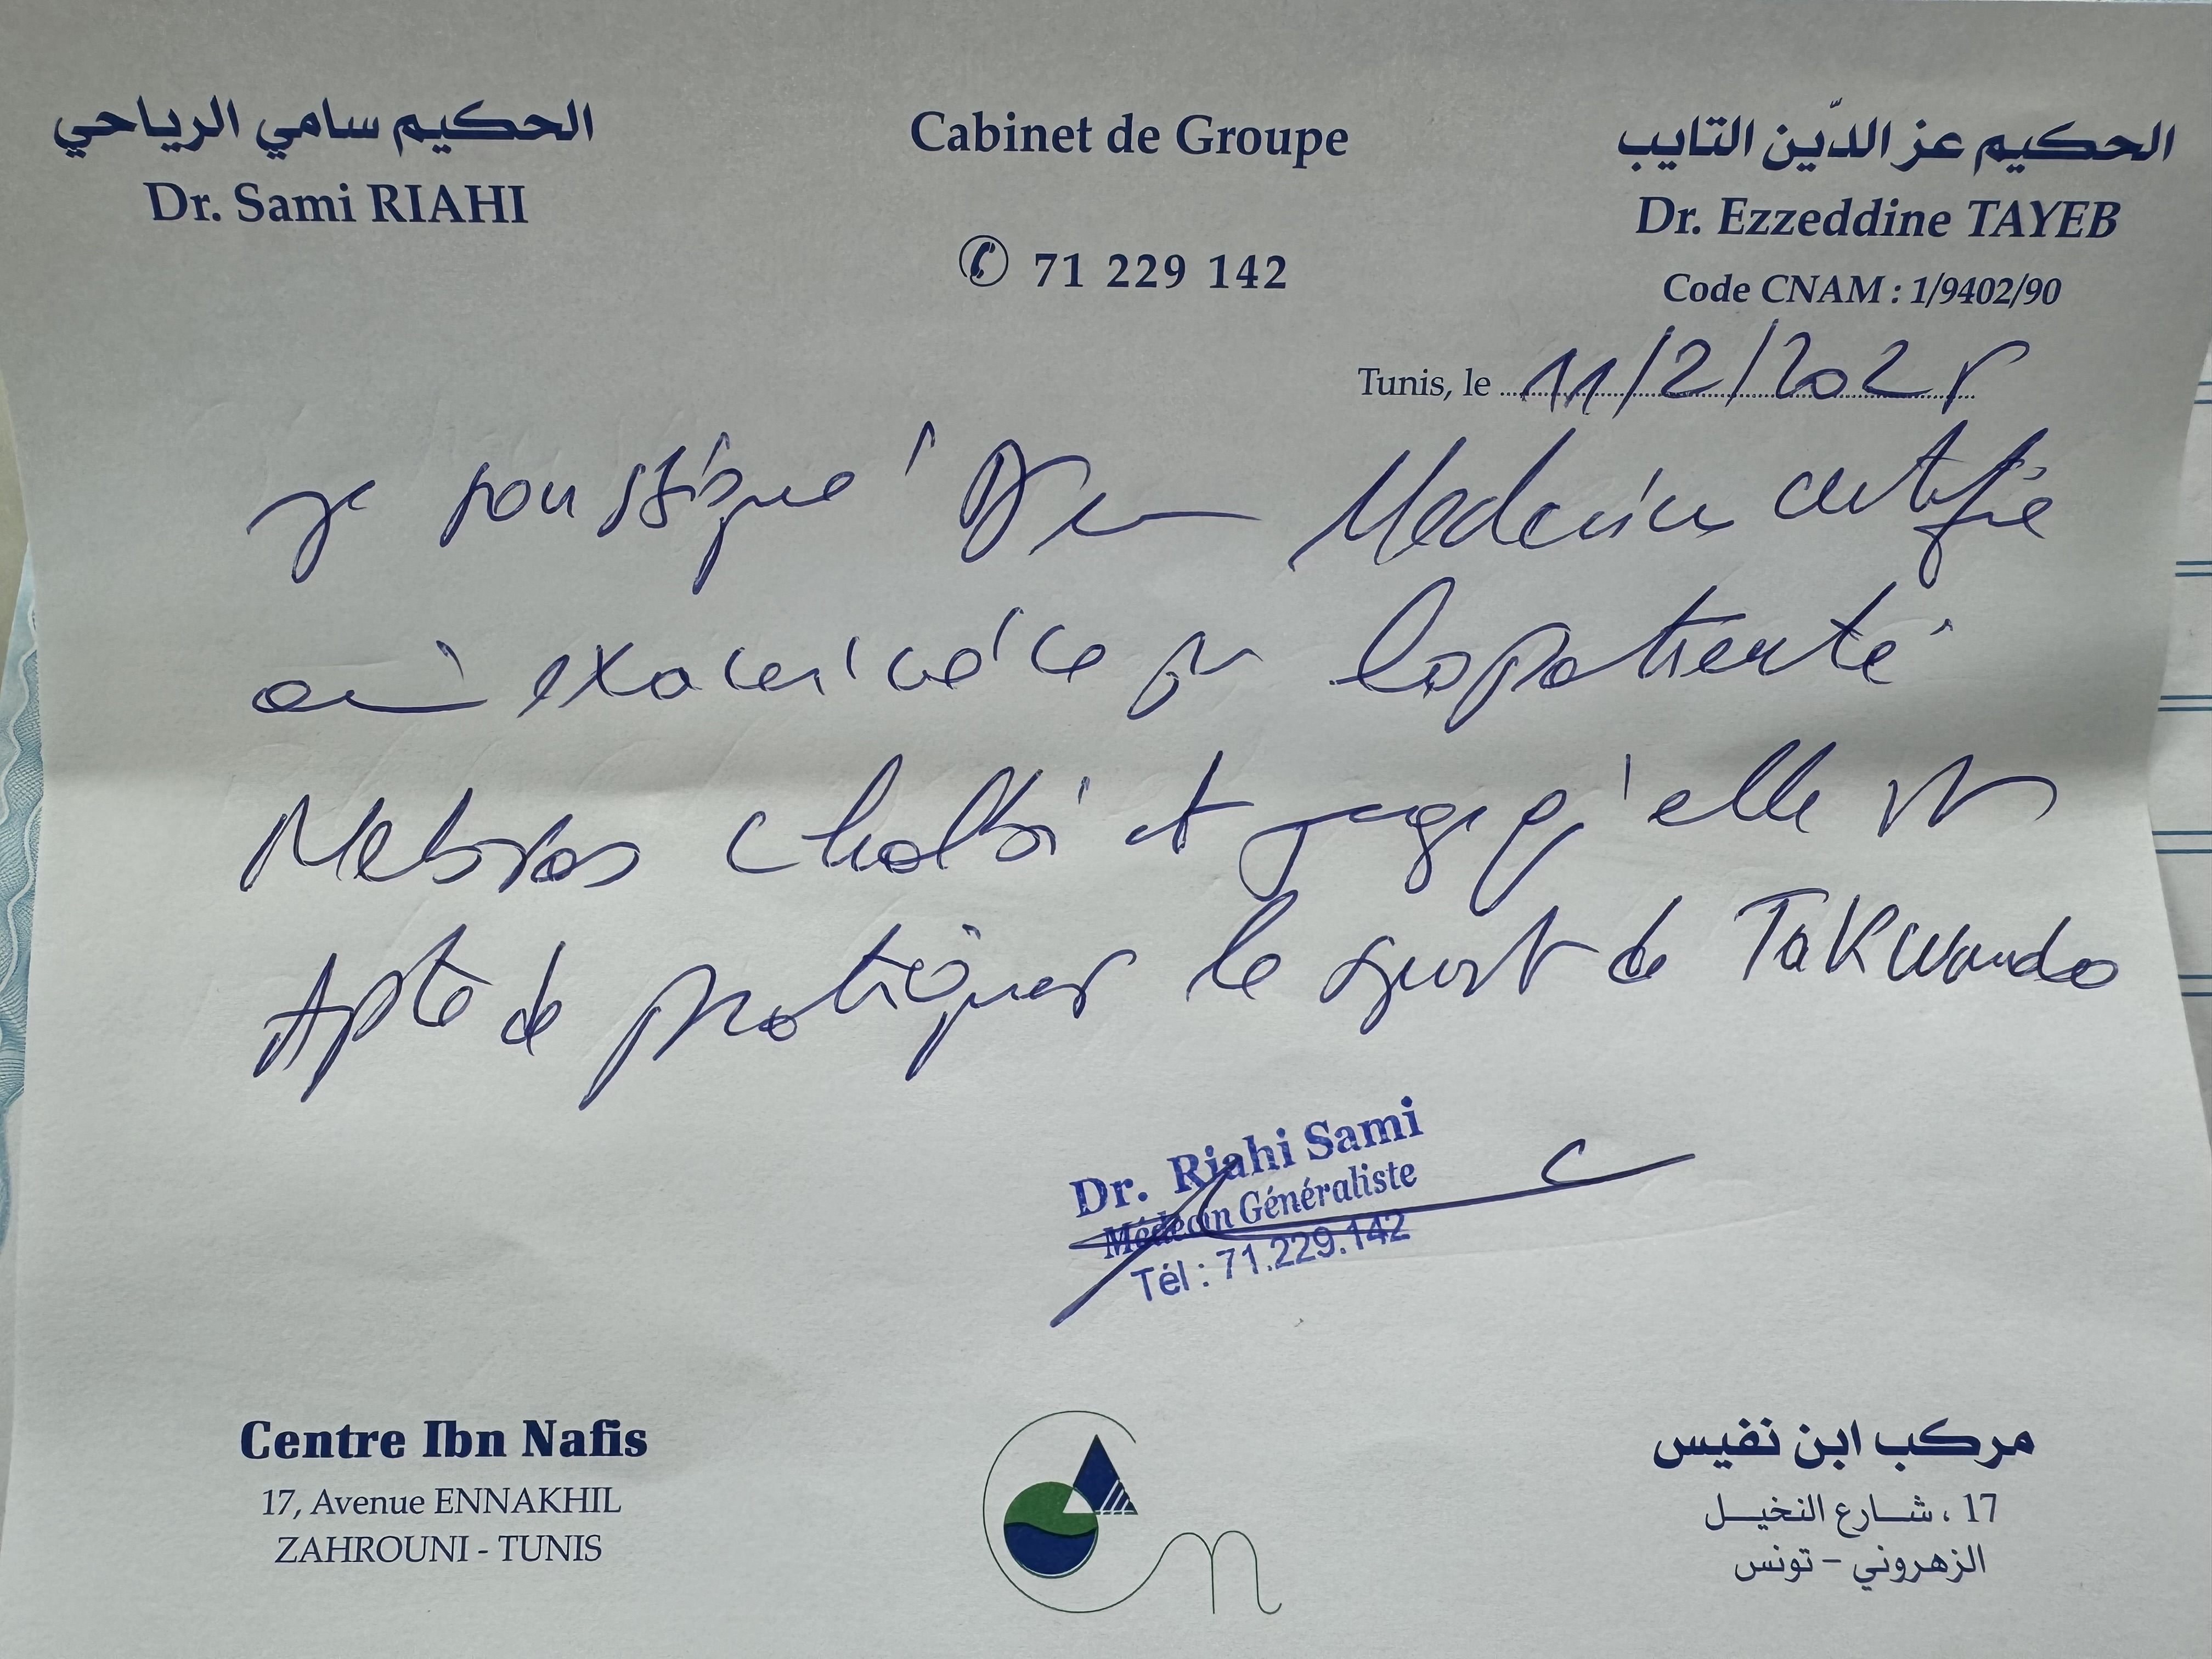 الحكيم سامي الرياحي
Dr. Sami RIAHI
Cabinet de Groupe
✆ 71 229 142
الحكيم عز الدّين التايب
Dr. Ezzeddine TAYEB
Code CNAM : 1/9402/90
Tunis, le 11/2/2025
Je soussigné Dr Medecin certifie
avoir examiné ce jour la patiente
Chalbi et juge qu'elle est
Apte de pratiquer le sport de TaKwando
Dr. Riahi Sami
Médecin Généraliste
Tél : 71.229.142
Centre Ibn Nafis
17, Avenue ENNAKHIL
ZAHROUNI - TUNIS
مركب ابن نفيس
17 ، شارع النخيل
الزهروني - تونس